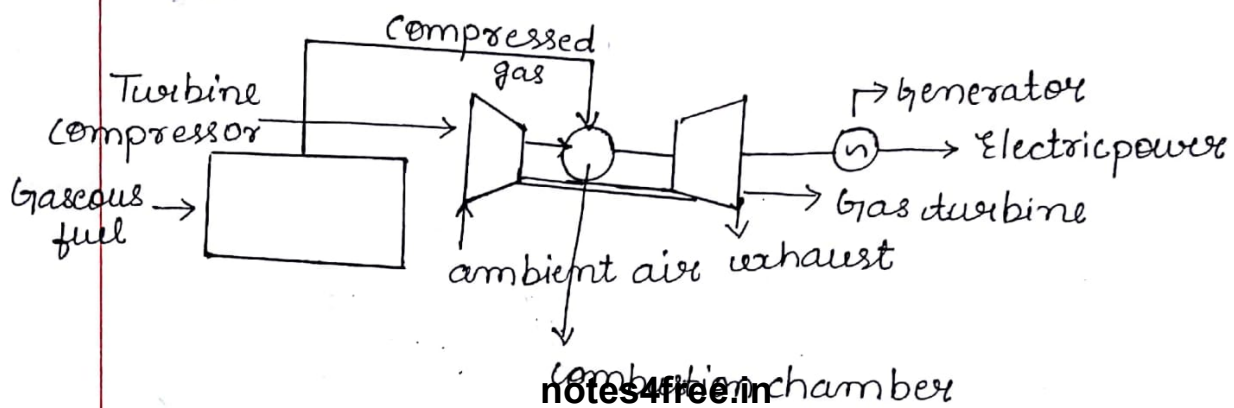 Compressed
gas
Turbine
Compressor
Generator
Electric power
Gaseous
fuel
Gas turbine
ambient air
exhaust
combustion chamber
notes4free.in